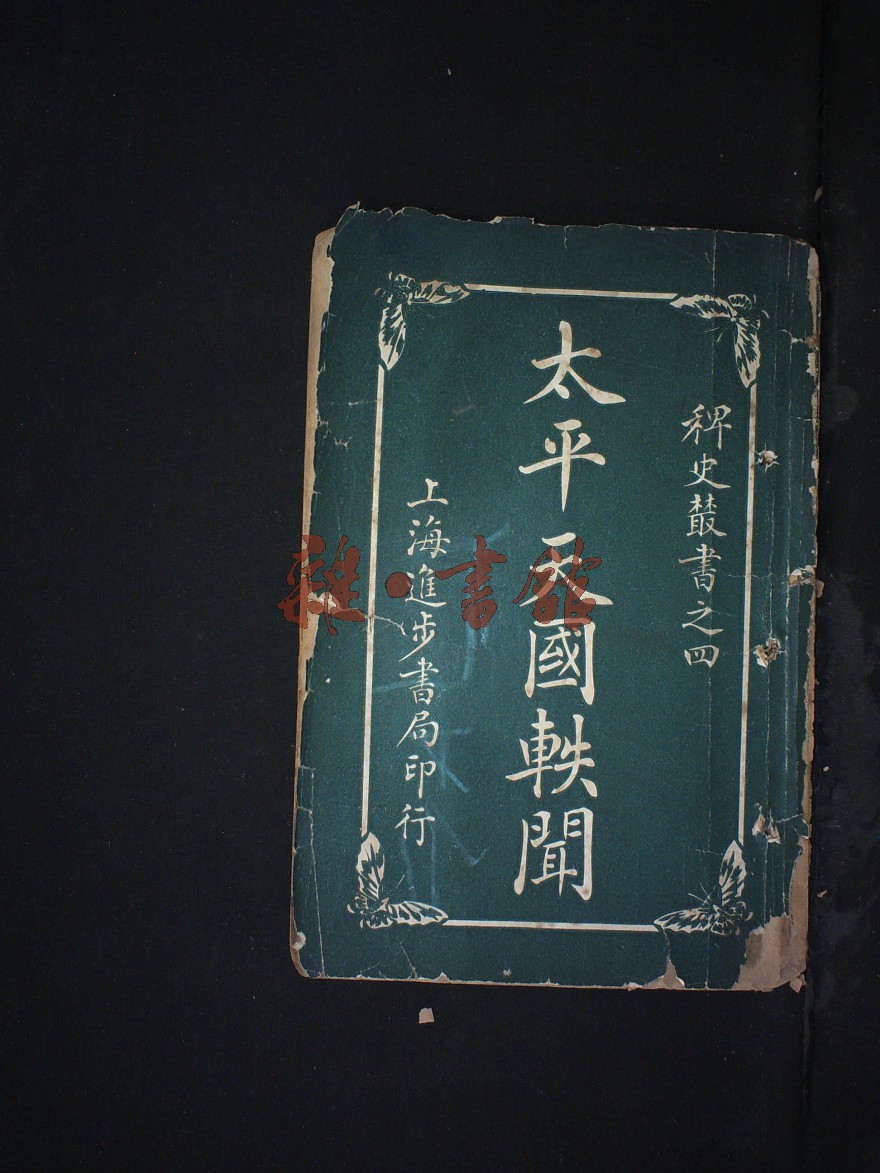 稗史叢書之四
太平天國軼聞
上海進步書局印行
雜·書館